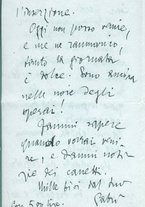 l'iscrizione.
Oggi non posso venire,
e me ne rammarico,
tanto la giornata
è dolce. Sono
nelle mani degli
operai!
Fammi sapere
quando vorrai veni
re; e dammi noti
zie dei canetti.
Mille baci dal tuo
Gabri